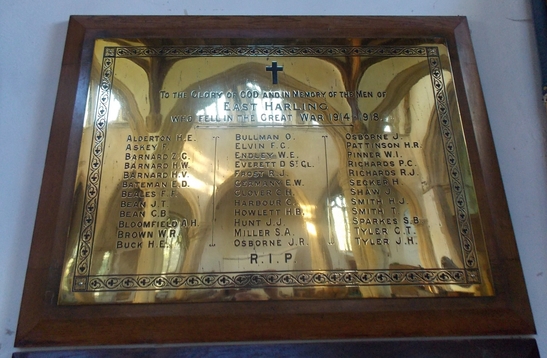 To the Glory of God, and in Memory of the Men of
East Harling
who fell in the Great War 1914-1918.
Alderton H.E.
Askey F.
Barnard Z.G.
Barnard H.W.
Barnard H.V.
Bateman E.D.
Beales F.E.
Bean J.T.
Bean C.B.
Bloomfield A.H.
Brown W.R.
Buck H.E.
Bullman D.
Elvin F.C.
Endley W.E.
Everett D St Cl.
Frost R.J.
E.W.
Glover C.H.
Harbour G.
Howlett H.B.
Hunt J.J.
Miller S.A.
Osborne J.R.
Osborne J.
Pattinson H.R.
Pinner W.I.
Richards P.C.
Richards R.J.
Secker H.
Shaw J.
Smith H.J.
Smith T.
Sparkes S.B.
Tyler C.T.
Tyler J.H.
R.I.P.